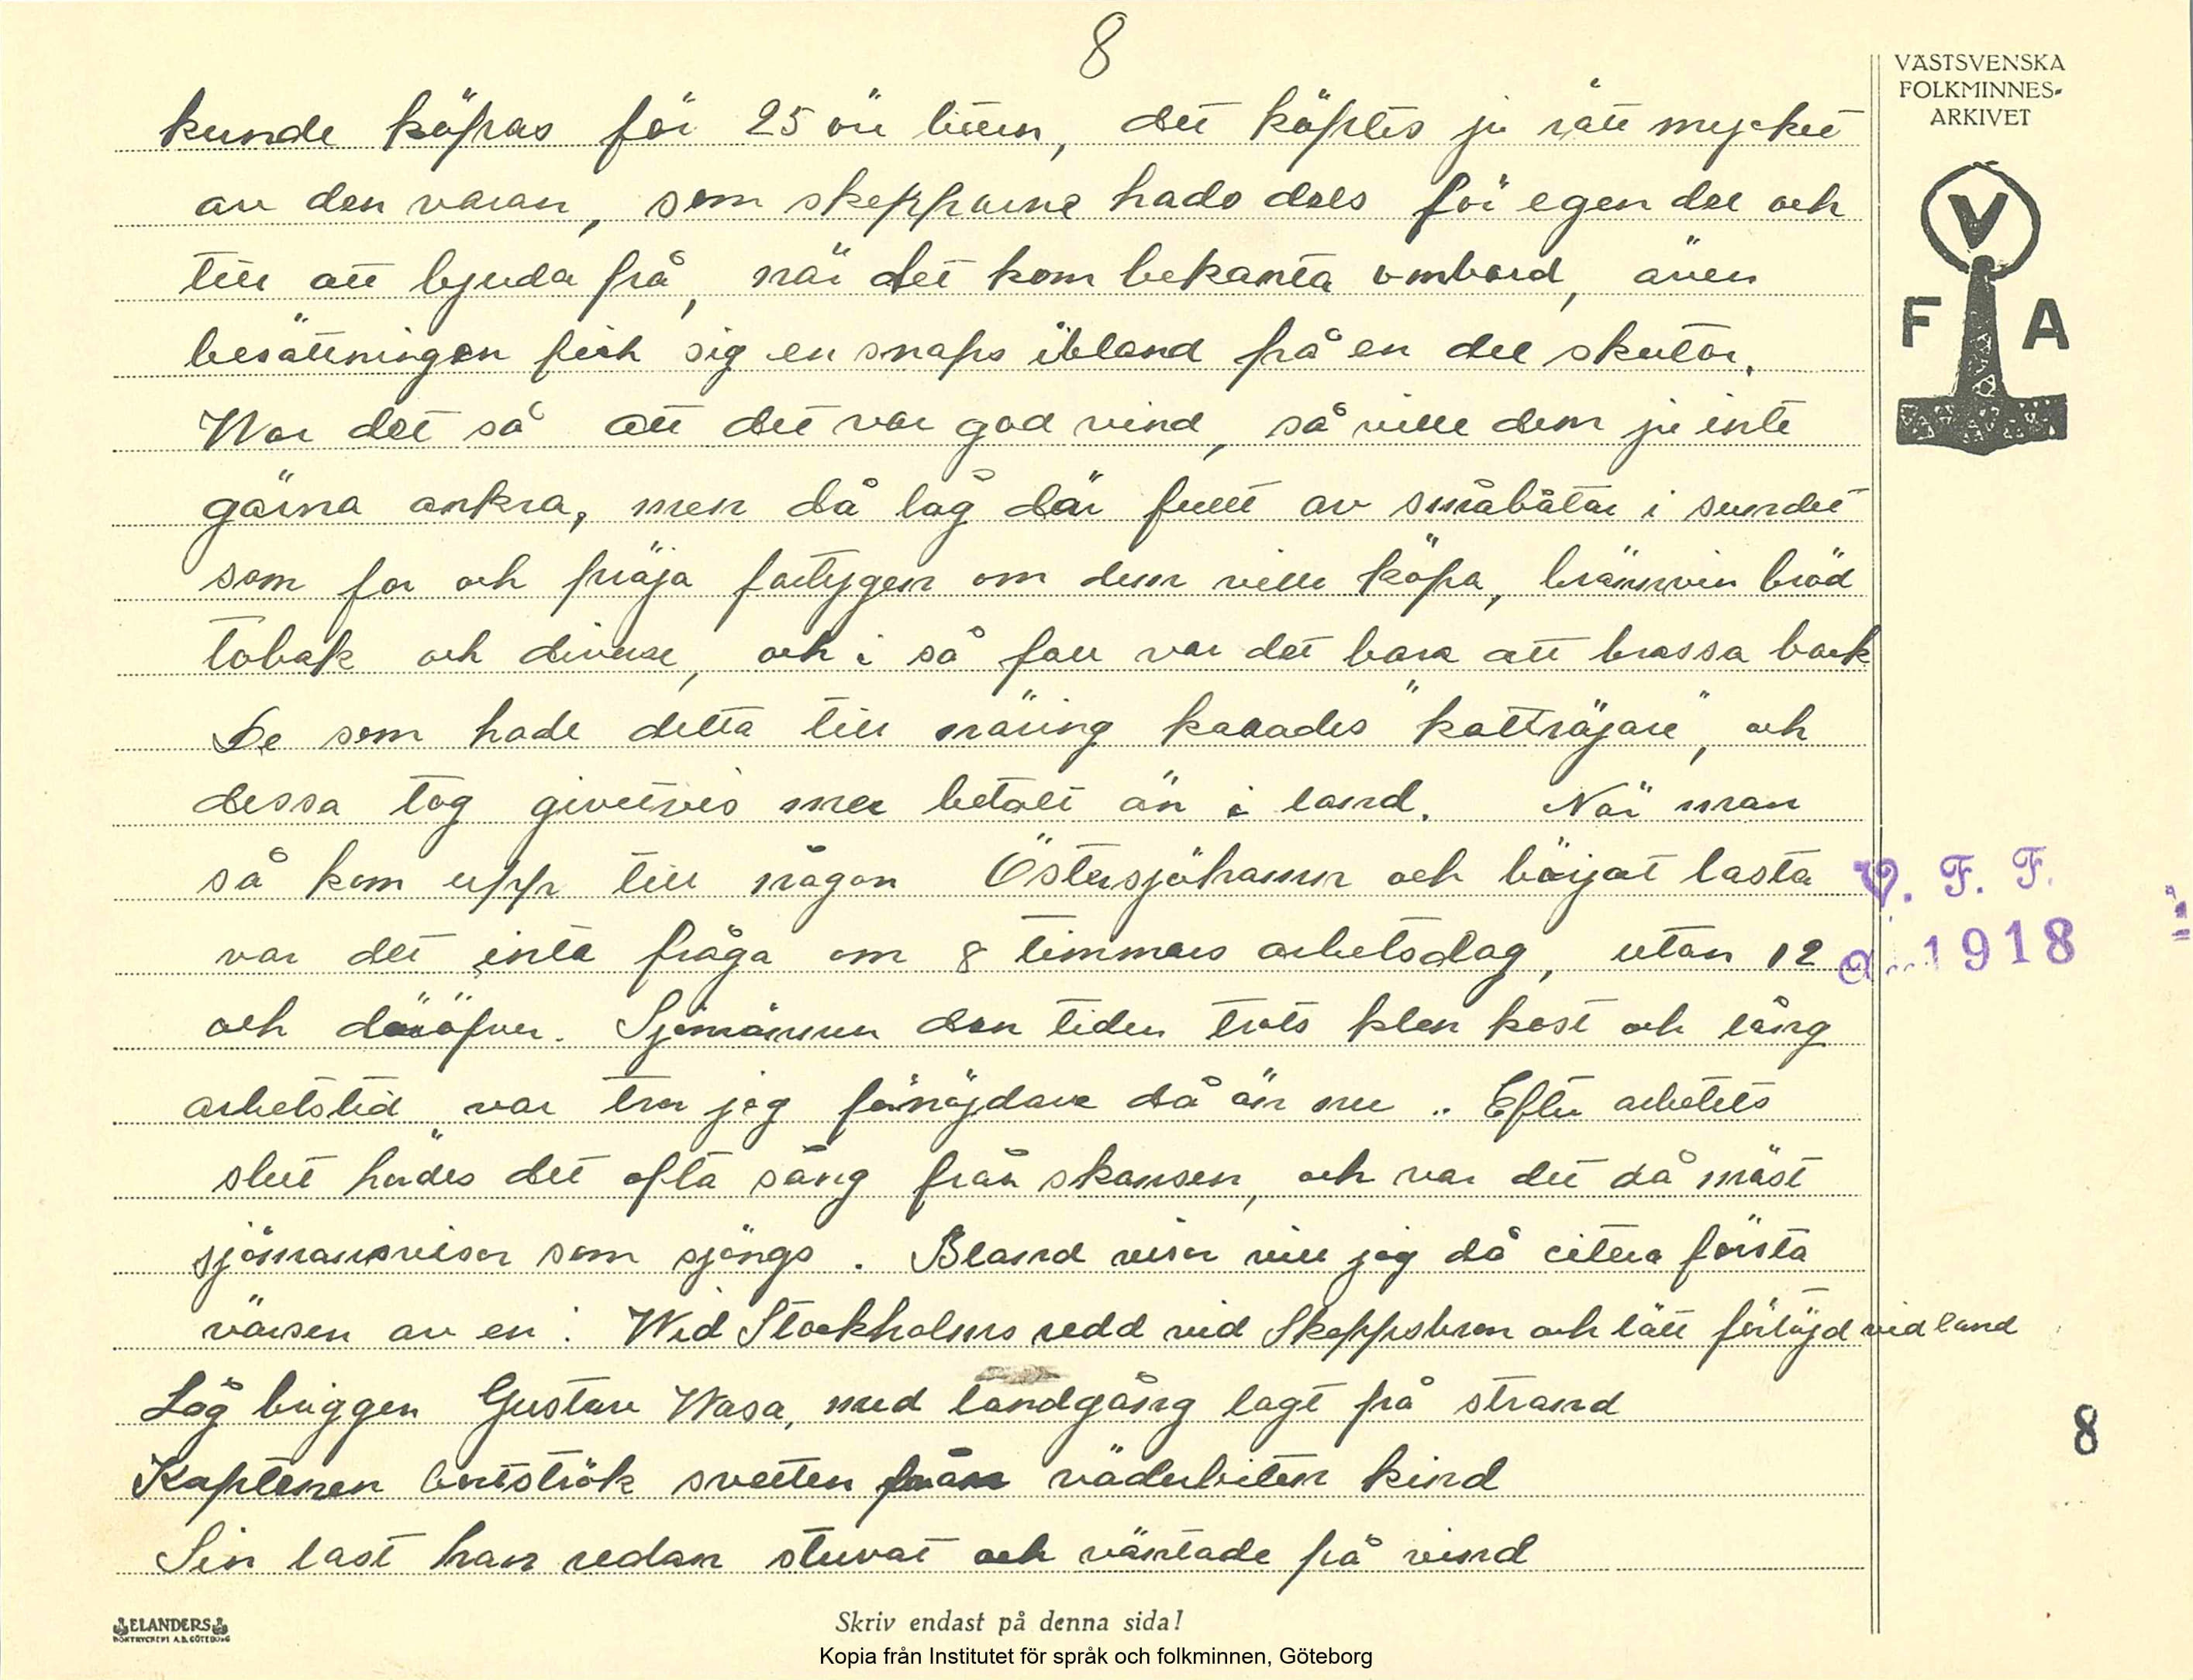 8
VÄSTSVENSKA
FOLKMINNES-
ARKIVET
V
F A
kunde köpas för 25 öre litern, det köptes ju rätt mycket
av den varan, som skepparne hade dels för egen del och
till att bjuda på, när det kom bekanta ombord, även
besättningen fick sig en snaps ibland på en del skutor.
War det så att det var god vind, så ville dem ju inte
gärna ankra, men då låg där fullt av småbåtar i sundet
som for och präja fartygen om dem ville köpa, brännvin bröd
tobak och diverse, och i så fall var det bara att brassa back
De som hade detta till näring kallades "katträjare", och
dessa tog givetvis mer betalt än i land. När man
så kom upp till någon Östersjöhamn och börjat lasta
var det inte fråga om 8 timmars arbetsdag, utan 12 á
och däröfver. Sjömännen den tiden trots klen kost och lång
arbetstid var tror jag förnöjdare då än nu .. Efter arbetets
slut hördes det ofta sång från skansen, och var det då mäst
sjömansvisor som sjöngs. Bland visor vill jag då citera första
värsen av en: Wid Stockholms redd vid Skeppsbron och lätt förtöjd vid land
Låg briggen Gustav Wasa, med landgång lagt på strand
Kaptenen bortströk svetten från väderbiten kind
Sin last han redan stuvat och väntade på vind
V. F. F.
1918
8
ELANDERS
BOKTRYCKERI A.B. GÖTEBORG
Skriv endast på denna sida!
Kopia från Institutet för språk och folkminnen, Göteborg